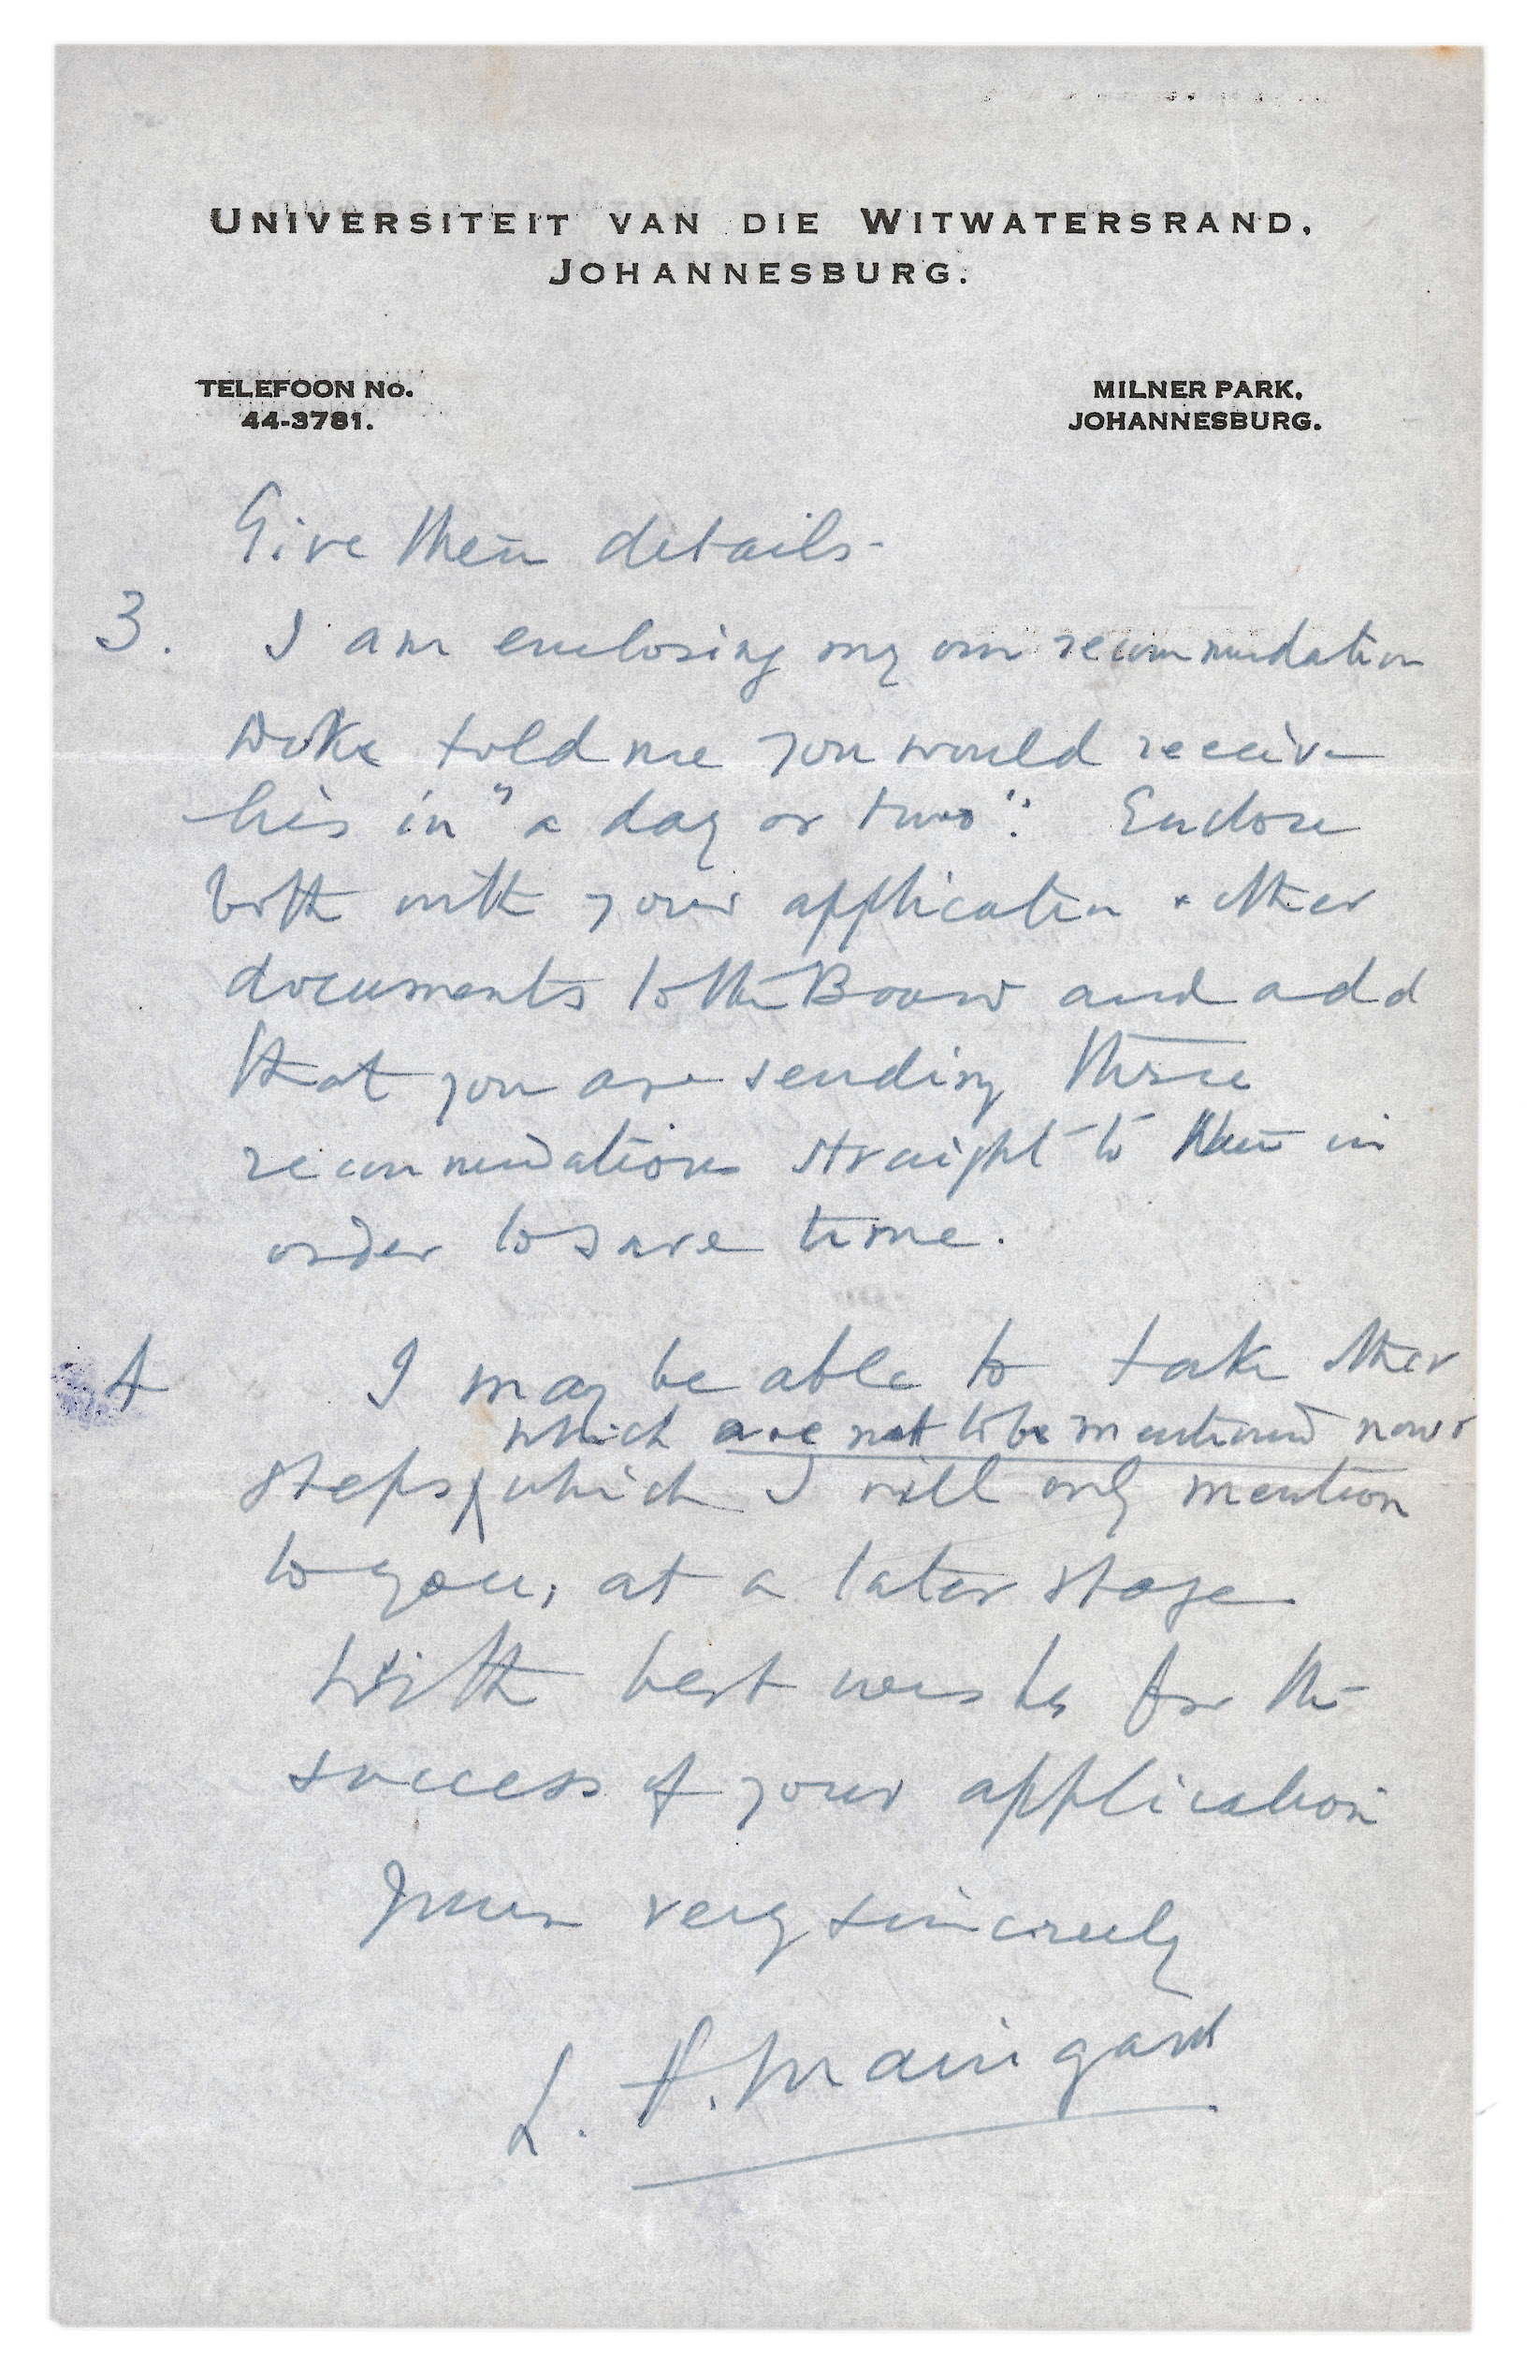 UNIVERSITEIT VAN DIE WITWATERSRAND,
JOHANNESBURG.
TELEFOON No.
44-3781.
MILNER PARK,
JOHANNESBURG.
Give them details.
3. I am enclosing my own recommendation
Doke told me you would receive
his in "a day or two". Enclose
both with your application & other
documents to the Board and add
that you are sending these
recommendations straight to them in
order to save time.
4 I may be able to take other
which are not to be mentioned now &
steps which I will only mention
to you, at a later stage
With best wishes for the
success of your application
Yours very sincerely
L. F. Maingard